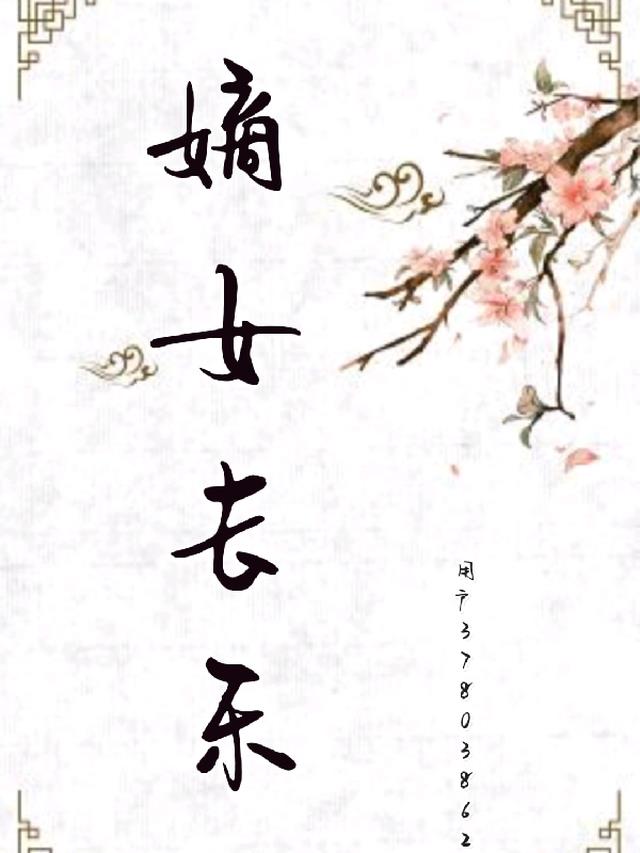 嫡女长乐
用户37803862